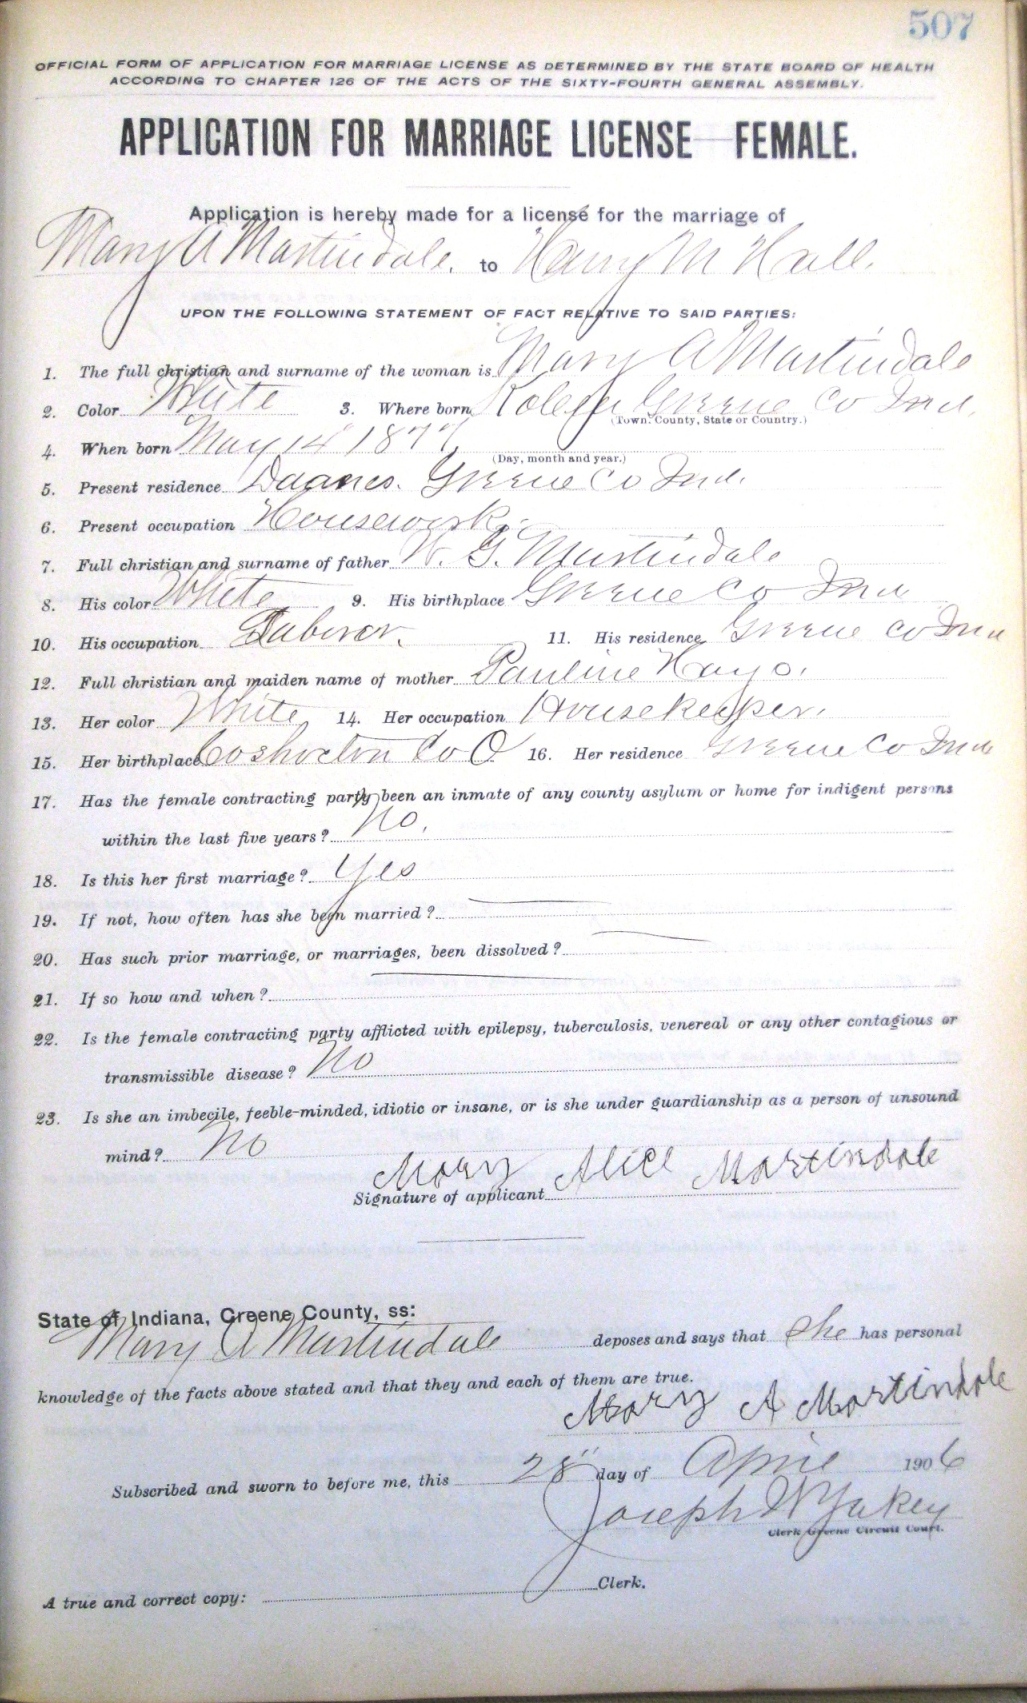 507
OFFICIAL FORM OF APPLICATION FOR MARRIAGE LICENSE AS DETERMINED BY THE STATE BOARD OF HEALTH
ACCORDING TO CHAPTER 126 OF THE ACTS OF THE SIXTY-FOURTH GENERAL ASSEMBLY.
APPLICATION FOR MARRIAGE LICENSE—FEMALE.
Application is hereby made for a license for the marriage of
Mary A Martindale. to Harry M Hall.
UPON THE FOLLOWING STATEMENT OF FACT RELATIVE TO SAID PARTIES:
1. The full christian and surname of the woman is Mary A Martindale
2. Color White 3. Where born Koleen Greene Co Ind.
(Town, County, State or Country.)
4. When born May 14" 1877
(Day, month and year.)
5. Present residence Greene Co Ind.
6. Present occupation Housework.
7. Full christian and surname of father W. G. Martindale
8. His color White 9. His birthplace Greene Co Ind
10. His occupation Laborer. 11. His residence Greene Co Ind
12. Full christian and maiden name of mother Pauline Hays.
13. Her color White 14. Her occupation Housekeeper.
15. Her birthplace Coshocton Co O 16. Her residence Greene Co Ind
17. Has the female contracting party been an inmate of any county asylum or home for indigent persons
within the last five years? No.
18. Is this her first marriage? Yes
19. If not, how often has she been married?
20. Has such prior marriage, or marriages, been dissolved?
21. If so how and when?
22. Is the female contracting party afflicted with epilepsy, tuberculosis, venereal or any other contagious or
transmissible disease? No
23. Is she an imbecile, feeble-minded, idiotic or insane, or is she under guardianship as a person of unsound
mind? No
Signature of applicant Mary Alice Martindale
State of Indiana, Greene County, ss:
Mary A Martindale deposes and says that she has personal
knowledge of the facts above stated and that they and each of them are true.
Mary A Martindale
Subscribed and sworn to before me, this 28" day of April 1906
Joseph W Yakey
Clerk Greene Circuit Court.
A true and correct copy: Clerk.